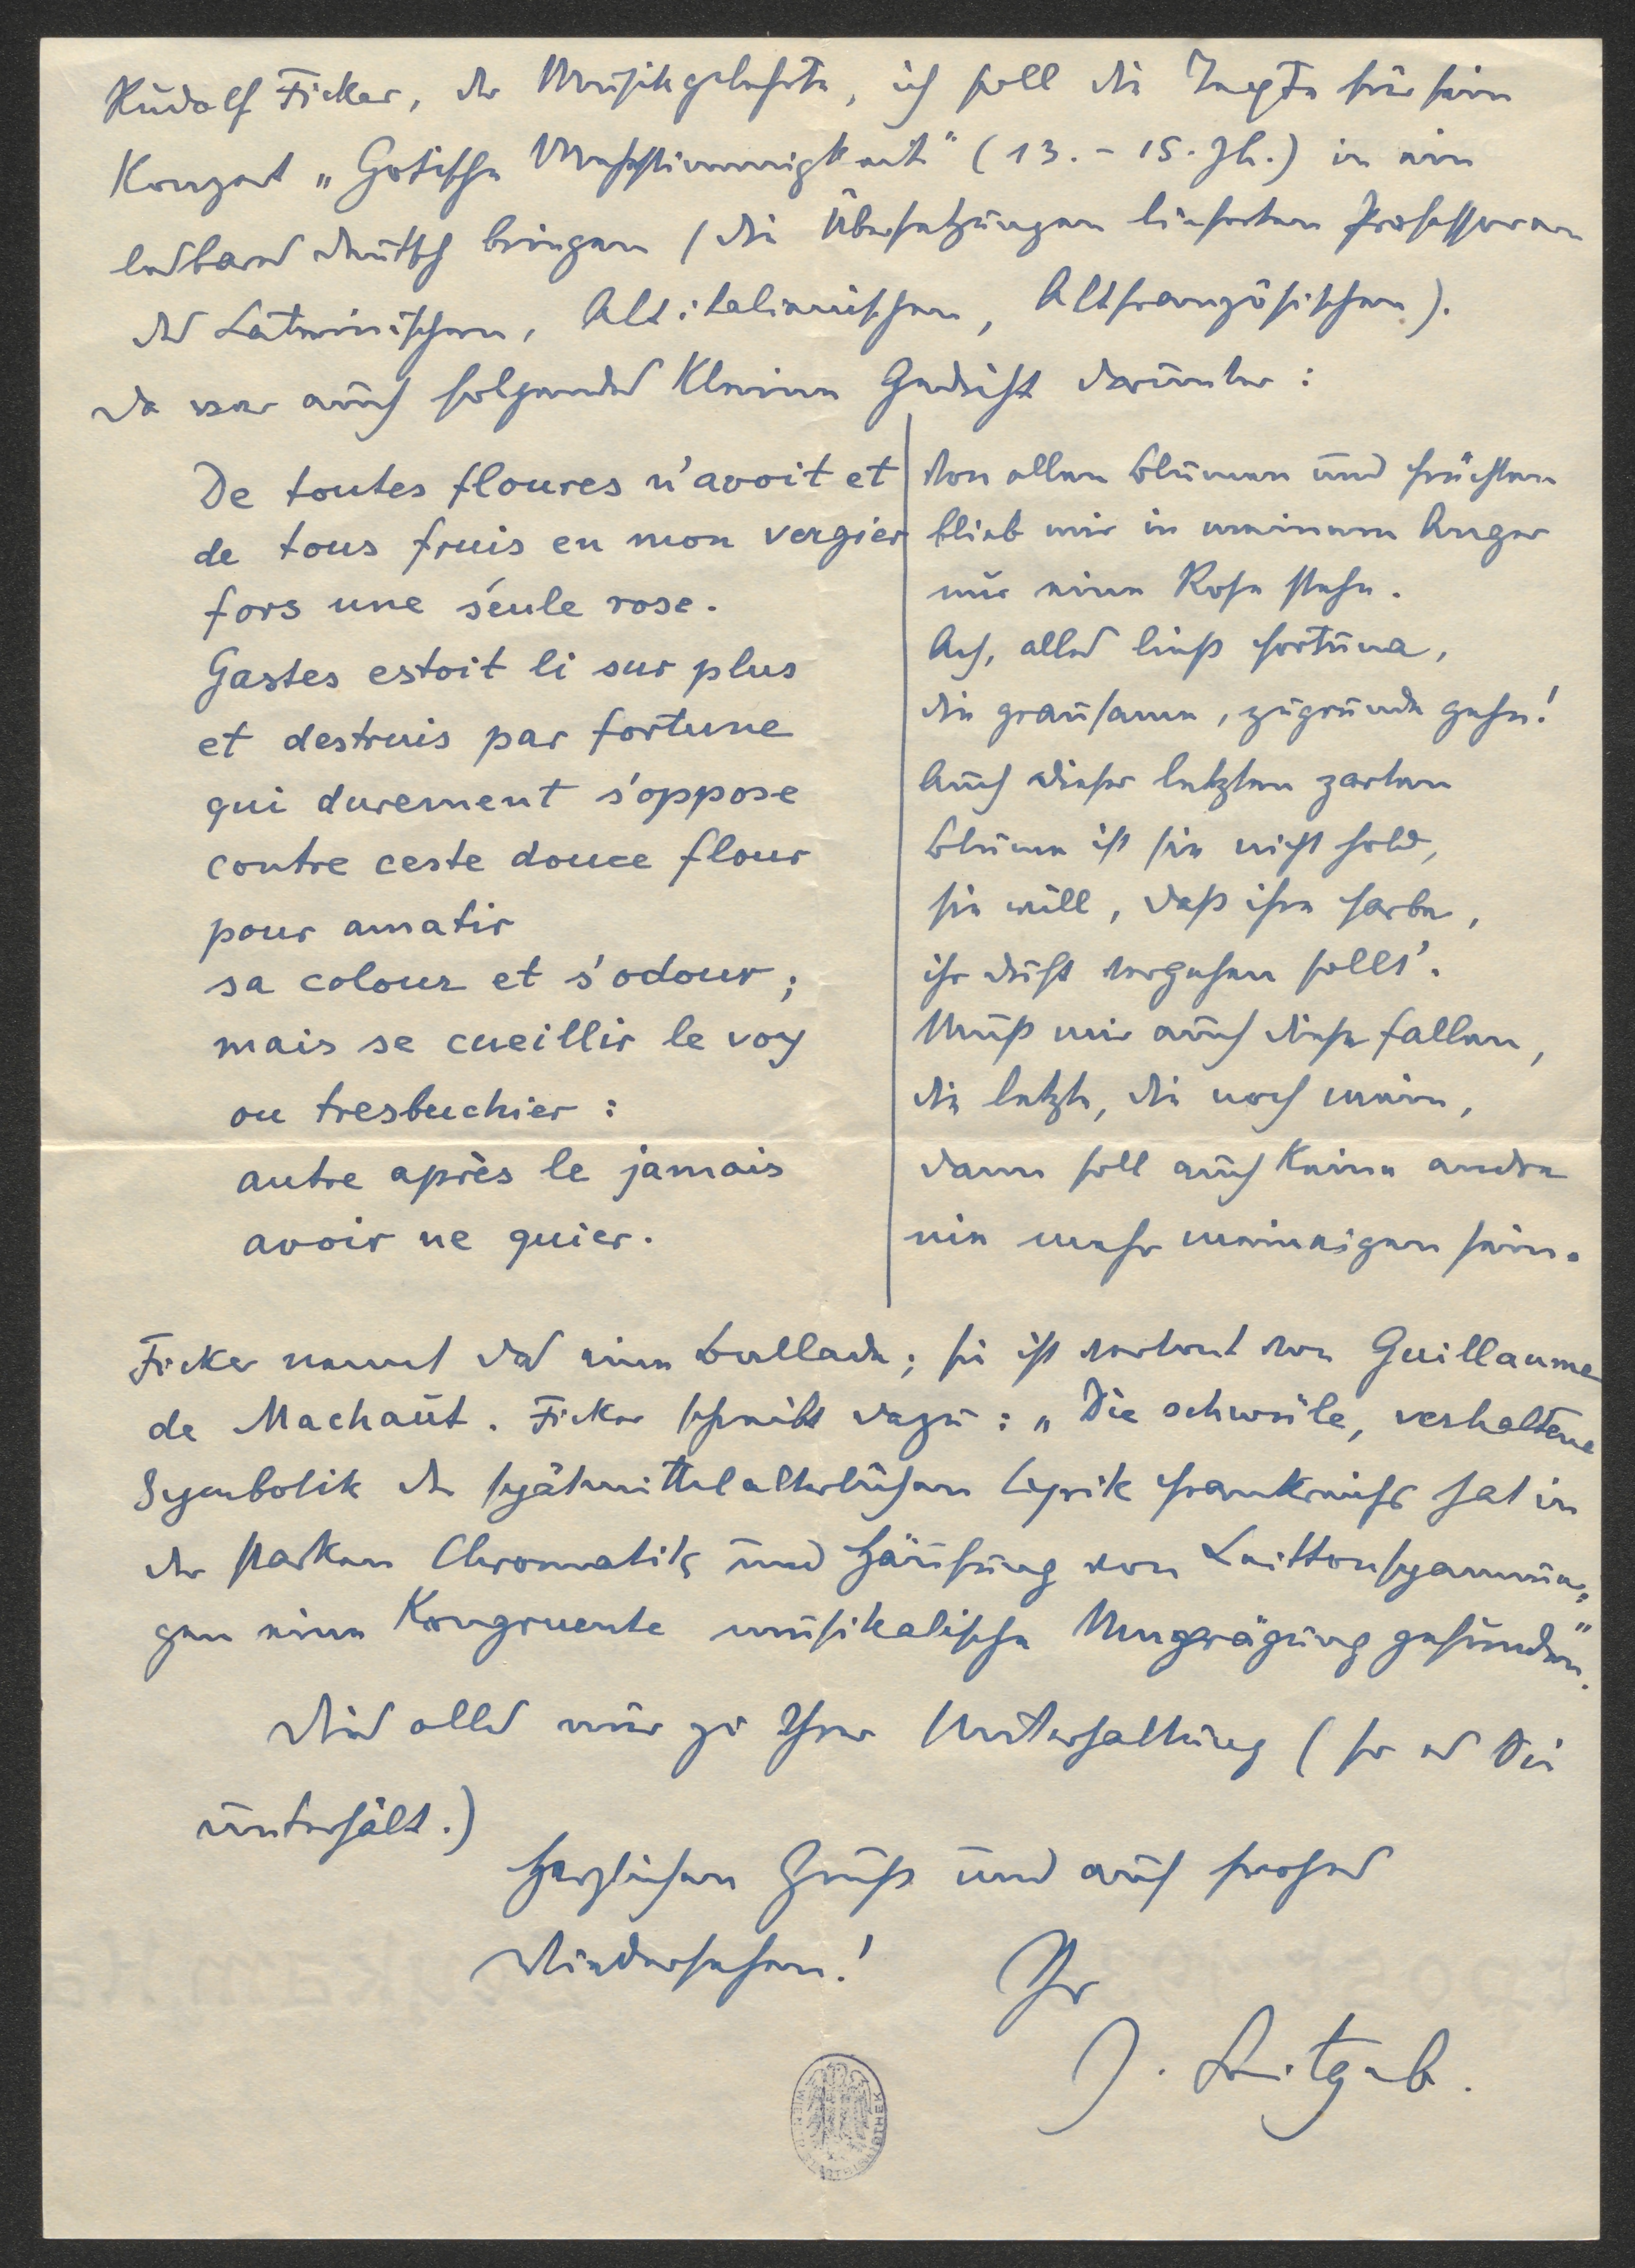 Rudolf Ficker, der Musikgelehrte, ich soll die Texte für sein
Konzert „Gotische Mehrstimmigkeit" (13.–15. Jh.) in ein
lesbares Deutsch bringen (die Übersetzungen lieferten Professoren
des Lateinischen, Altitalienischen, Altfranzösischen).
Da war auch folgendes kleine Gedicht darunter:
De toutes floures n'avoit et
de tous fruis en mon vergier
fors une seule rose.
Gastes estoit li sur plus
et destruis par fortune
qui durement s'oppose
contre ceste douce flour
pour amatir
sa colour et s'odour;
mais se cueillir le voy
ou tresbuchier:
autre après le jamais
avoir ne quier.
Von allen Blumen und Früchten
blieb mir in meinem Anger
nur eine Rose stehn.
Ach, alles ließ Fortuna,
die grausame, zugrunde gehn!
Auch dieser letzten zarten
Blume ist sie nicht hold,
sie will, daß ihre Farbe,
ihr Duft vergehen sollt'.
Muß mir auch diese fallen,
die letzte, die noch mein,
dann soll auch keine andre
nie mehr meineigen sein.
Ficker nennt das eine Ballade; sie ist vertont von Guillaume
de Machaut. Ficker schreibt dazu: „Die schwüle, verhaltene
Symbolik der spätmittelalterlichen Lyrik Frankreichs hat in
der starken Chromatik und Häufung von Leittonspannun-
gen eine kongruente musikalische Ausprägung gefunden".
Dies alles nur zu Ihrer Unterhaltung (so es Sie
unterhält.)
Herzlichen Gruß und auf frohes
Wiedersehen!
Ihr
J. Leitgeb.